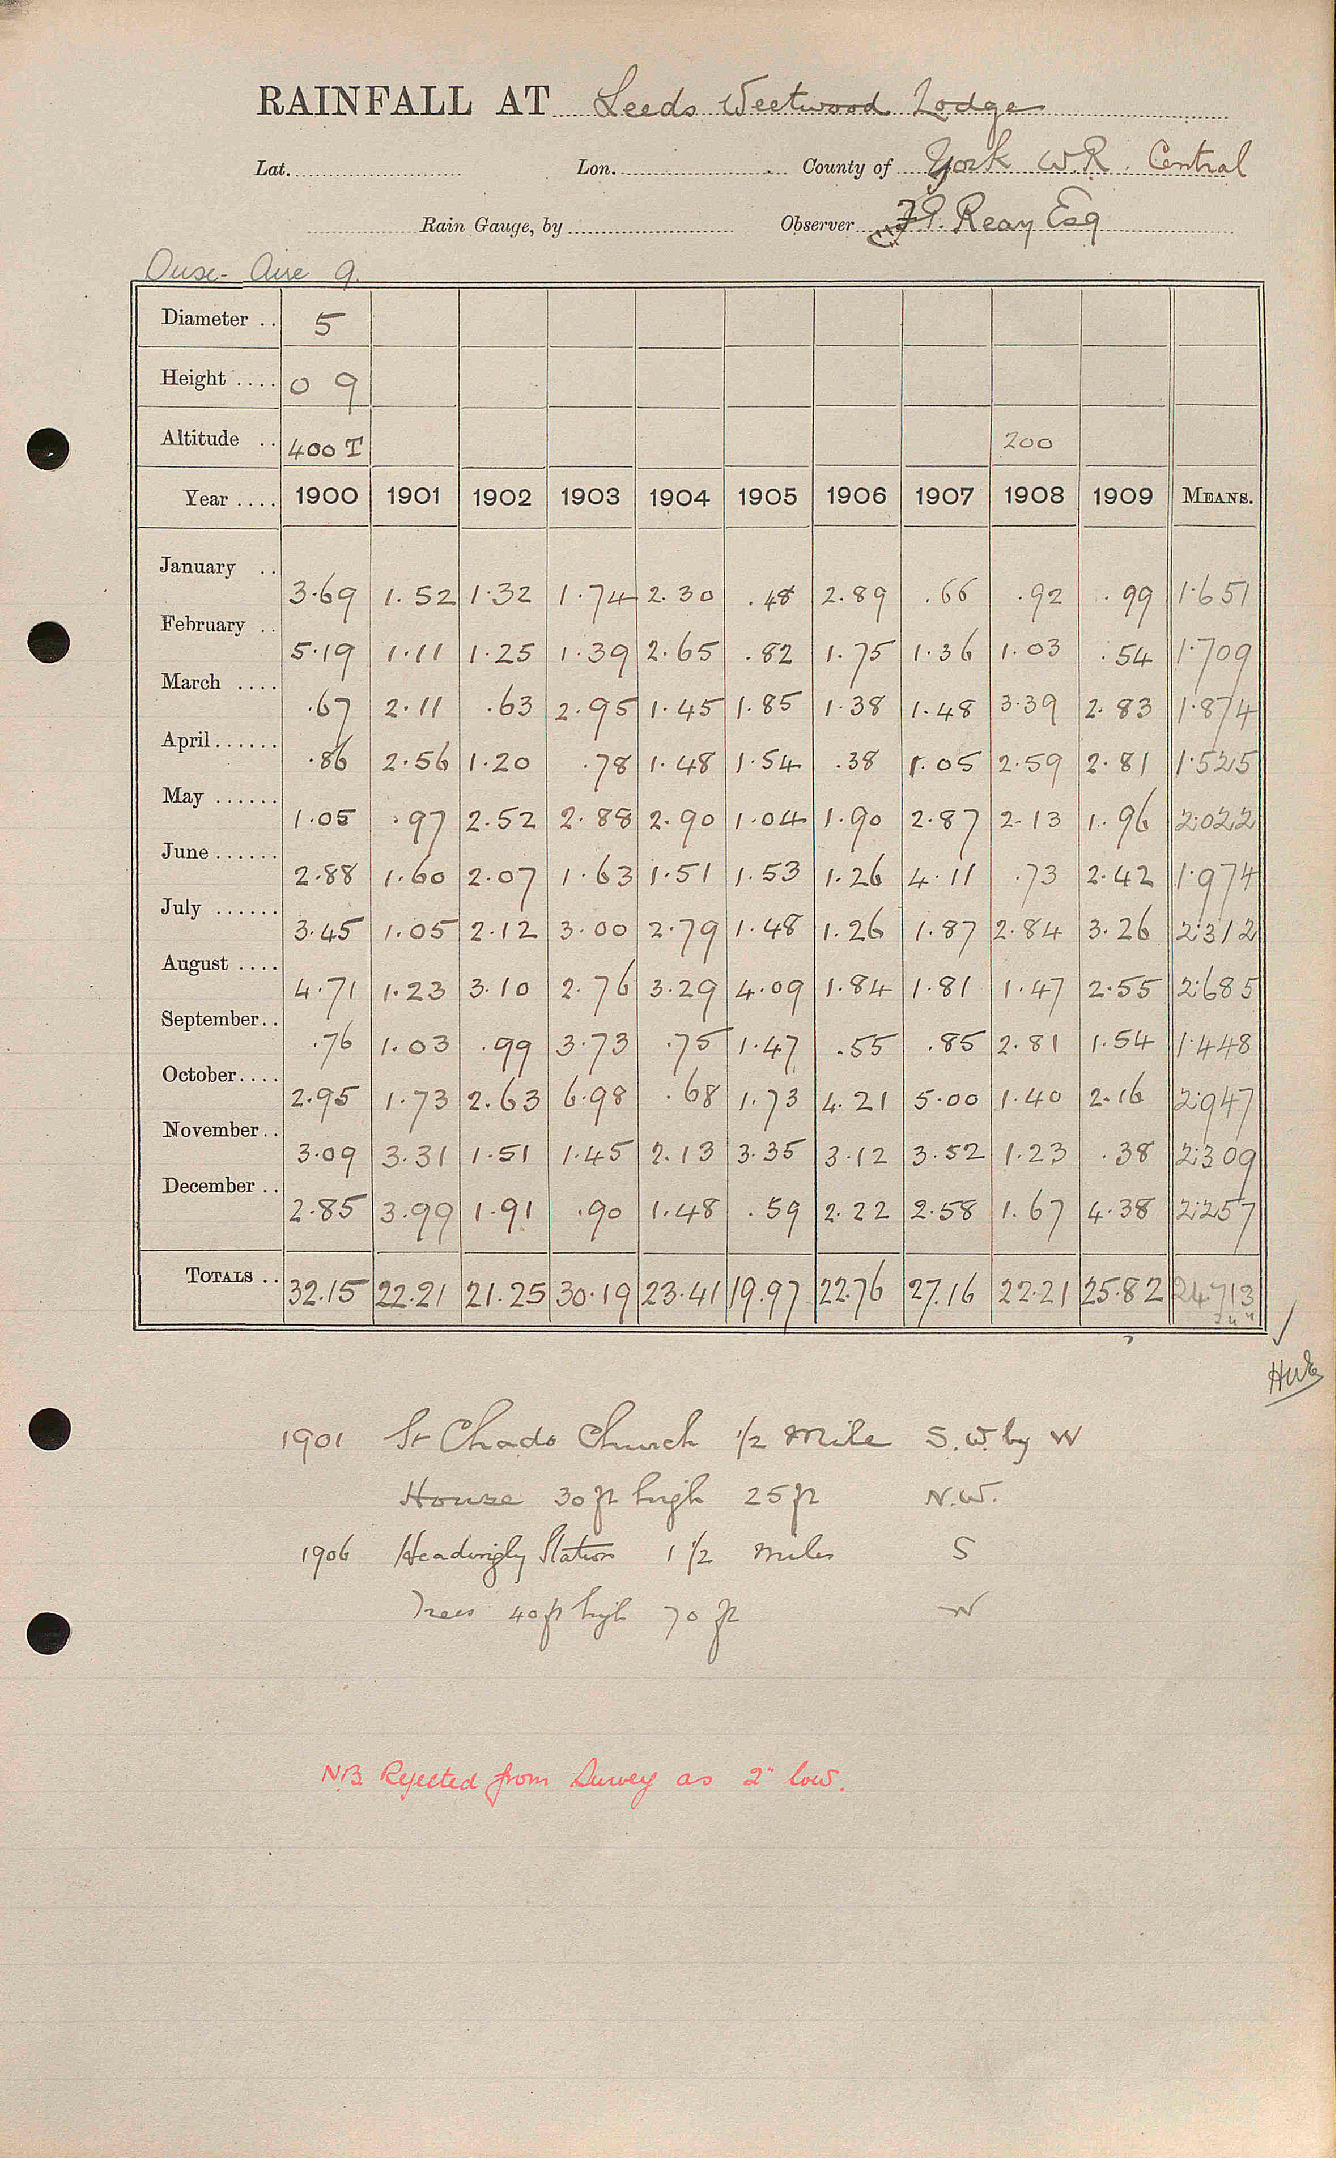 RAINFALL AT Leeds Weetwood Lodge
Lat. Lon. County of York W.R. Central
Rain Gauge, by Observer Reay Esq
Ouse - Aire 9.
Diameter .. 5
Height .... 0 9
Altitude .. 400 T 200
Year .... 1900 1901 1902 1903 1904 1905 1906 1907 1908 1909 MEANS.
January .. 3.69 1.52 1.32 1.74 2.30 .48 2.89 .66 .92 .99 1.651
February .. 5.19 1.11 1.25 1.39 2.65 .82 1.75 1.36 1.03 .54 1.709
March .... .67 2.11 .63 2.95 1.45 1.85 1.38 1.48 3.39 2.83 1.874
April...... .86 2.56 1.20 .78 1.48 1.54 .38 1.05 2.59 2.81 1.525
May ...... 1.05 .97 2.52 2.88 2.90 1.04 1.90 2.87 2.13 1.96 2.022
June...... 2.88 1.60 2.07 1.63 1.51 1.53 1.26 4.11 .73 2.42 1.974
July ...... 3.45 1.05 2.12 3.00 2.79 1.48 1.26 1.87 2.84 3.26 2.312
August .... 4.71 1.23 3.10 2.76 3.29 4.09 1.84 1.81 1.47 2.55 2.685
September.. .76 1.03 .99 3.73 .75 1.47 .55 .85 2.81 1.54 1.448
October.... 2.95 1.73 2.63 6.98 .68 1.73 4.21 5.00 1.40 2.16 2.947
November.. 3.09 3.31 1.51 1.45 2.13 3.35 3.12 3.52 1.23 .38 2.309
December .. 2.85 3.99 1.91 .90 1.48 .59 2.22 2.58 1.67 4.38 2.257
TOTALS .. 32.15 22.21 21.25 30.19 23.41 19.97 22.76 27.16 22.21 25.82 24.713
1901 St Chads Church 1/2 Mile S.W. by W
House 30 ft high 25 ft N.W.
1906 Headingly Station 1 1/2 miles S
Trees 40 ft high 70 ft W
N.B. Rejected from Survey as 2" low.